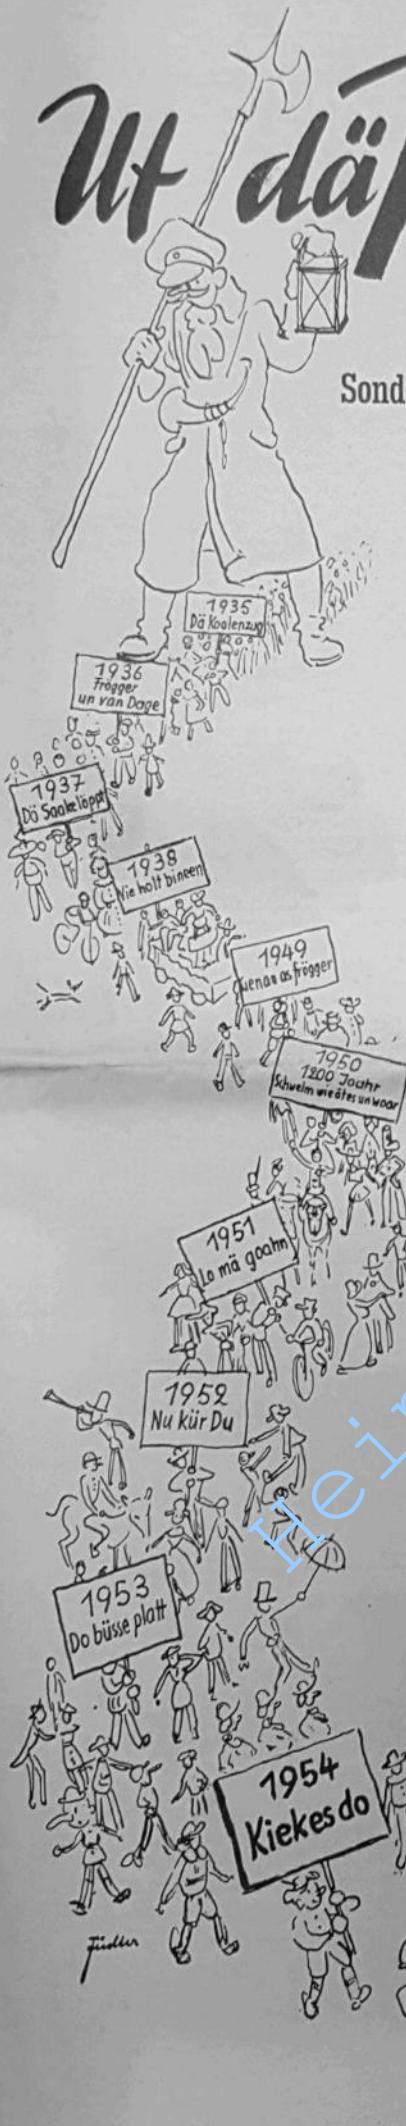 Ut dä
Sond
1935
Dä Koolenzug
1936
Frögger
un van Dage
1937
Dä Saake löppt
1938
Nie holt bineen
1949
Genau as frögger
1950
1200 Joahr
Schwelm wie ätes un woar
1951
Lo mä goahn
1952
Nu kür Du
1953
Do büsse platt
1954
Kiekes do
Hein